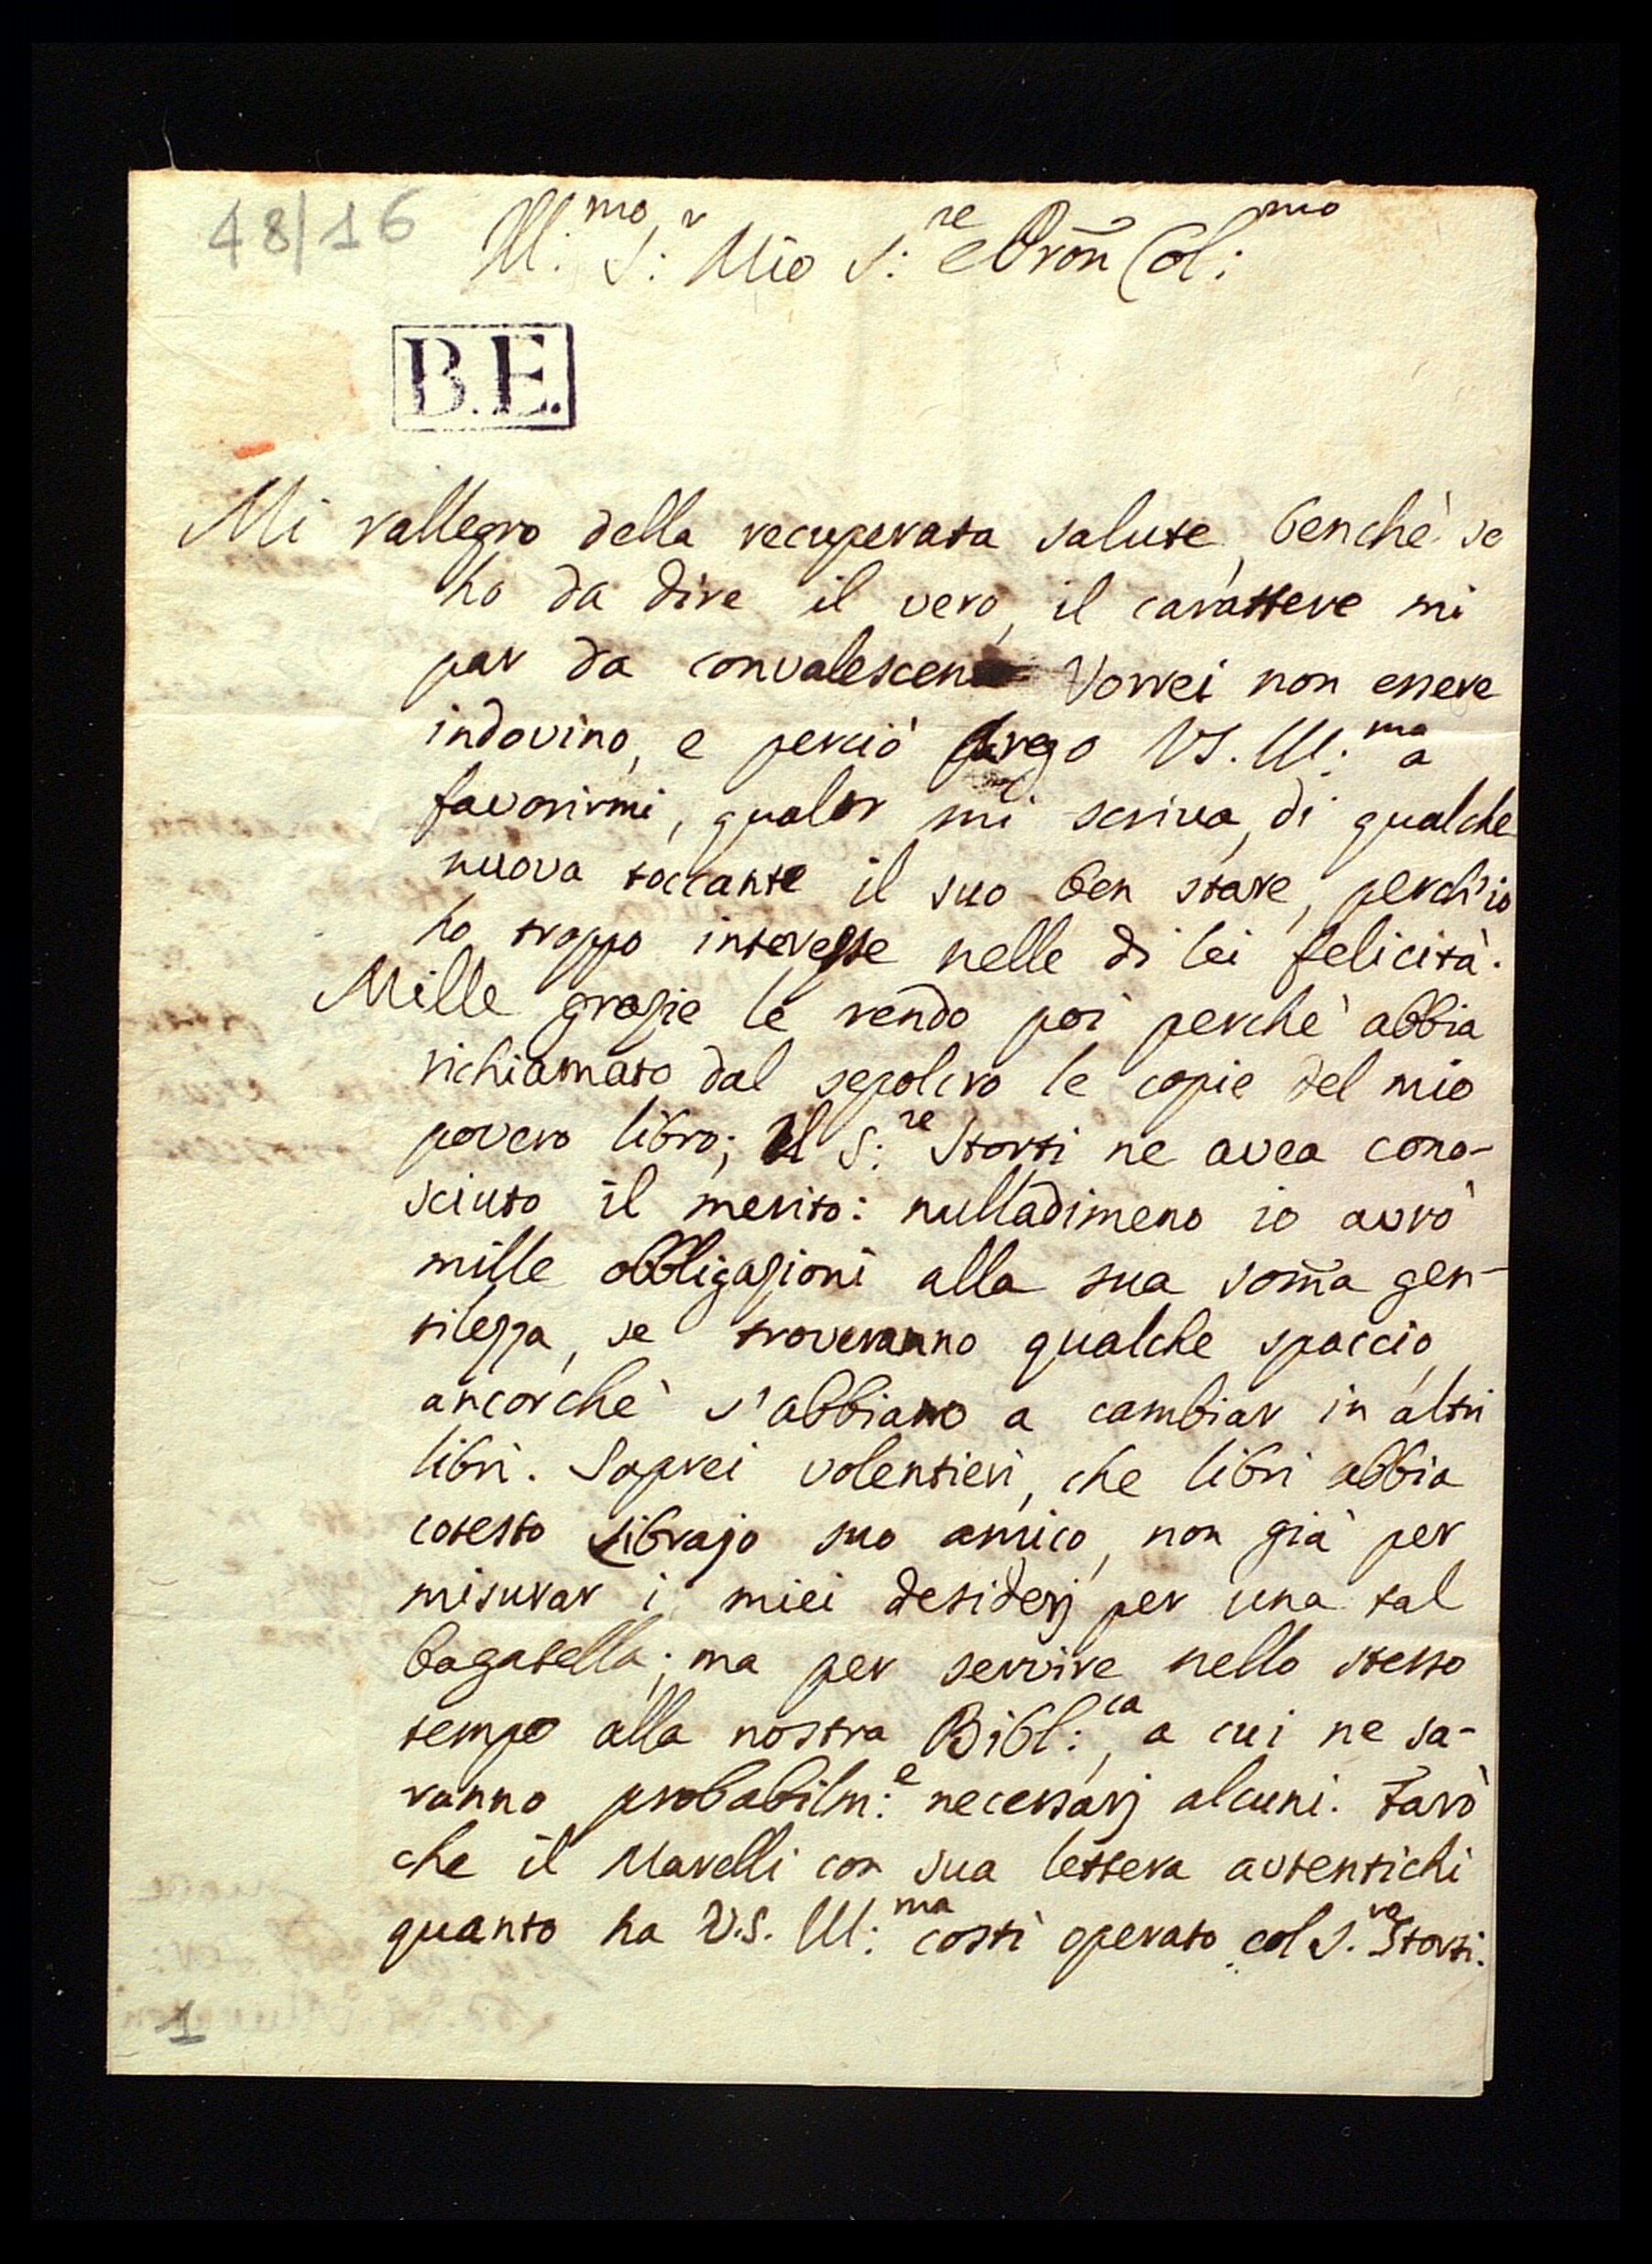 48/16
Ill:mo S:r Mio S:re e Pron Col:mo
B.E.
Mi rallegro della recuperata salute, benchè se
ho da dire il vero, il carattere mi
par da convalescen Vorrei non essere
indovino, e perciò prego VS. Ill:ma a
favorirmi, qualor mi scriva, di qualche
nuova toccante il suo ben stare, perch'io
ho troppo interesse nelle di lei felicità.
Mille grazie le rendo poi perchè abbia
richiamato dal sepolcro le copie del mio
povero libro; Il S:re Storti ne avea cono-
sciuto il merito: nulladimeno io avrò
mille obbligazioni alla sua som̃a gen-
tilezza, se troveranno qualche spaccio,
ancorchè s'abbiano a cambiar in altri
libri. Saprei volentieri, che libri abbia
cotesto Librajo suo amico, non già per
misurar i miei desiderj per una tal
bagatella; ma per servire nello stesso
tempo alla nostra Bibl:ca, a cui ne sa-
ranno probabilm:e necessarj alcuni. Farò
che il Marelli con sua lettera autentichi
quanto ha V.S. Ill:ma costì operato col S.re Storti.
1